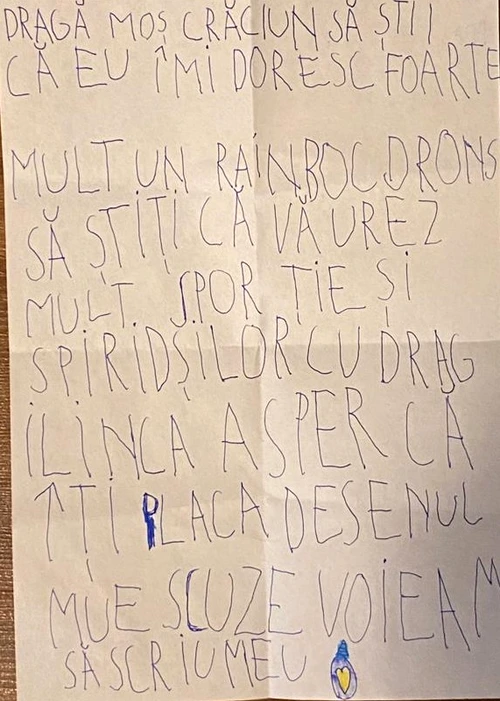 DRAGĂ MOȘ CRĂCIUN SĂ ȘTII
CĂ EU ÎMI DORESC FOARTE
MULT UN RAINBOCDRONS
SĂ ȘTIȚI CĂ VĂ UREZ
MULT SPOR ȚIE ȘI
SPIRIDȘILOR CU DRAG
ILINCA ASPER CĂ
ÎȚI PLACA DESENUL
MUE SCUZE VOIEAM
SĂ SCRIU MEU